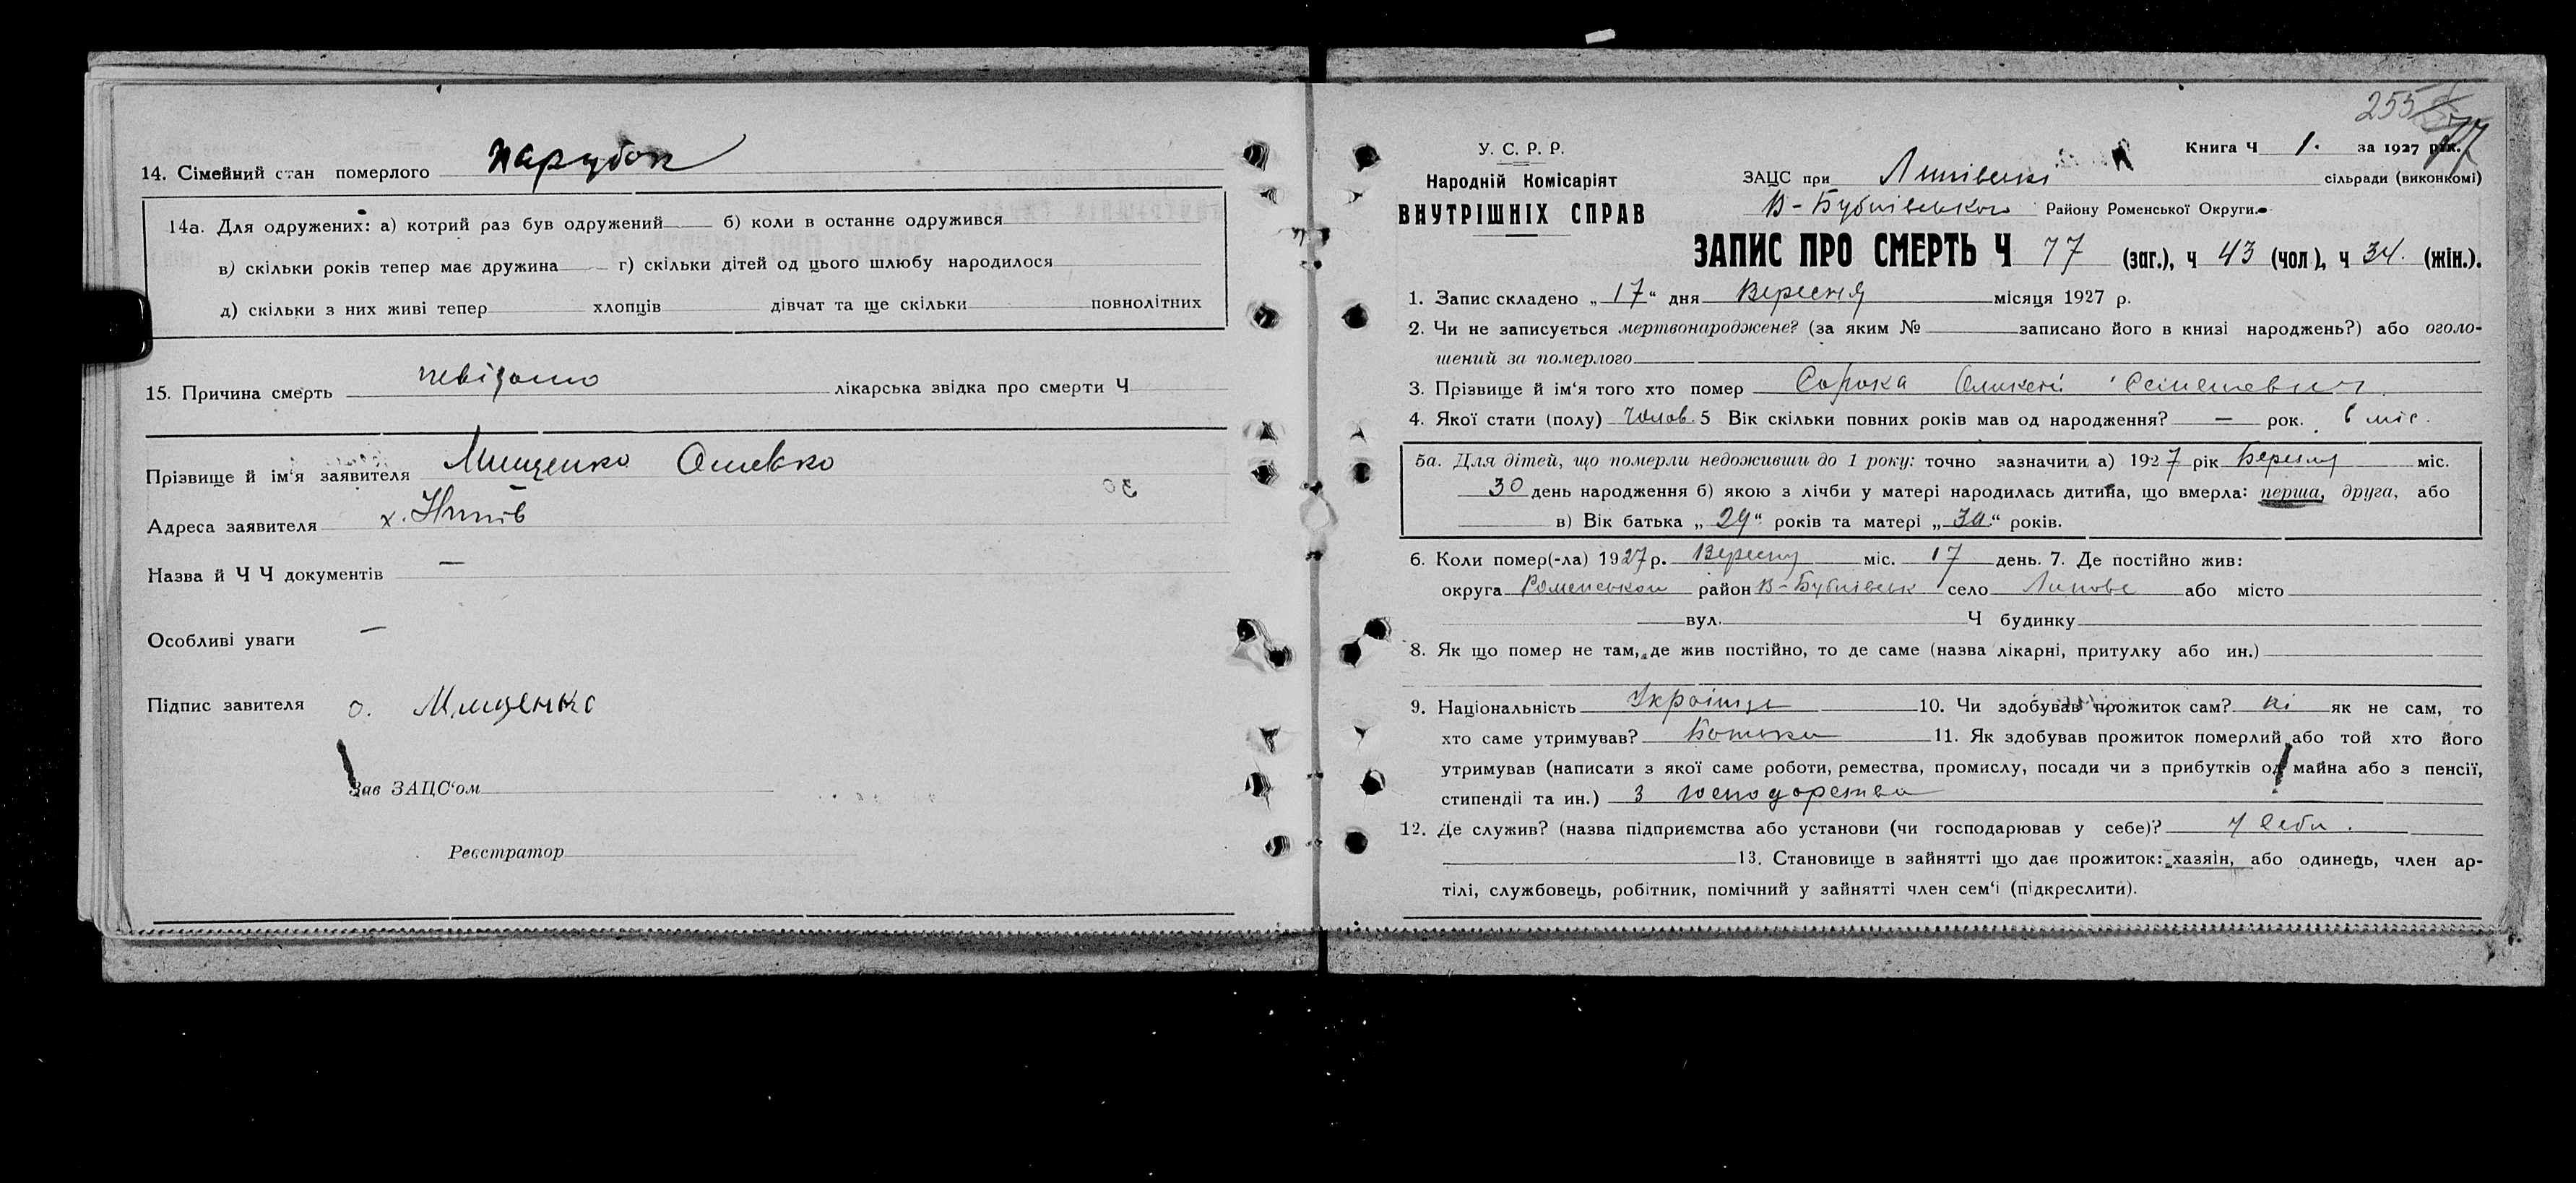 14. Сімейний стан померлого парубок
14а. Для одружених: а) котрий раз був одружений б) коли в останнє одружився
в) скільки років тепер має дружина г) скільки дітей од цього шлюбу народилося
д) скільки з них живі тепер хлопців дівчат та ще скільки повнолітних
15. Причина смерть невідомо лікарська звідка про смерти Ч
Прізвище й ім'я заявителя Мищенко
Адреса заявителя х.
Назва й Ч Ч документів —
Особливі уваги —
Підпис завителя о. Мищенко
Зав ЗАЦС'ом
Реєстратор
253
77
У. С. Р. Р.
Народній Комісаріят
ВНУТРІШНІХ СПРАВ
Книга Ч 1. за 1927 рік.
ЗАЦС при сільради (виконкомі)
В-Бубнівського Району Роменської Округи.
ЗАПИС ПРО СМЕРТЬ Ч 77 (заг.), ч 43 (чол), ч 34. (жін.).
1. Запис складено „17" дня Вересня місяця 1927 р.
2. Чи не записується мертвонароджене? (за яким № записано його в книзі народжень?) або оголо-
шений за померлого
3. Прізвище й ім'я того хто помер Сорока
4. Якої стати (полу) Чолов. 5 Вік скільки повних років мав од народження? — рок. 6 міс.
5а. Для дітей, що померли недоживши до 1 року: точно зазначити а) 1927 рік Березня міс.
30 день народження б) якою з лічби у матері народилась дитина, що вмерла: перша, друга, або
в) Вік батька „29" років та матері „30" років.
6. Коли помер(-ла) 1927 р. Вересня міс. 17 день. 7. Де постійно жив:
округа Роменської район В-Бубнівськ село Липове або місто
вул. Ч будинку
8. Як що помер не там, де жив постійно, то де саме (назва лікарні, притулку або ин.)
9. Національність Українець 10. Чи здобував прожиток сам? ні як не сам, то
хто саме утримував? Батьки 11. Як здобував прожиток померлий або той хто його
утримував (написати з якої саме роботи, ремества, промислу, посади чи з прибутків од майна або з пенсії,
стипендії та ин.) З господарства
12. Де служив? (назва підприємства або установи (чи господарював у себе)? У себе.
13. Становище в зайнятті що дає прожиток: хазяїн, або одинець, член ар-
тілі, службовець, робітник, помічний у зайнятті член сем'ї (підкреслити).